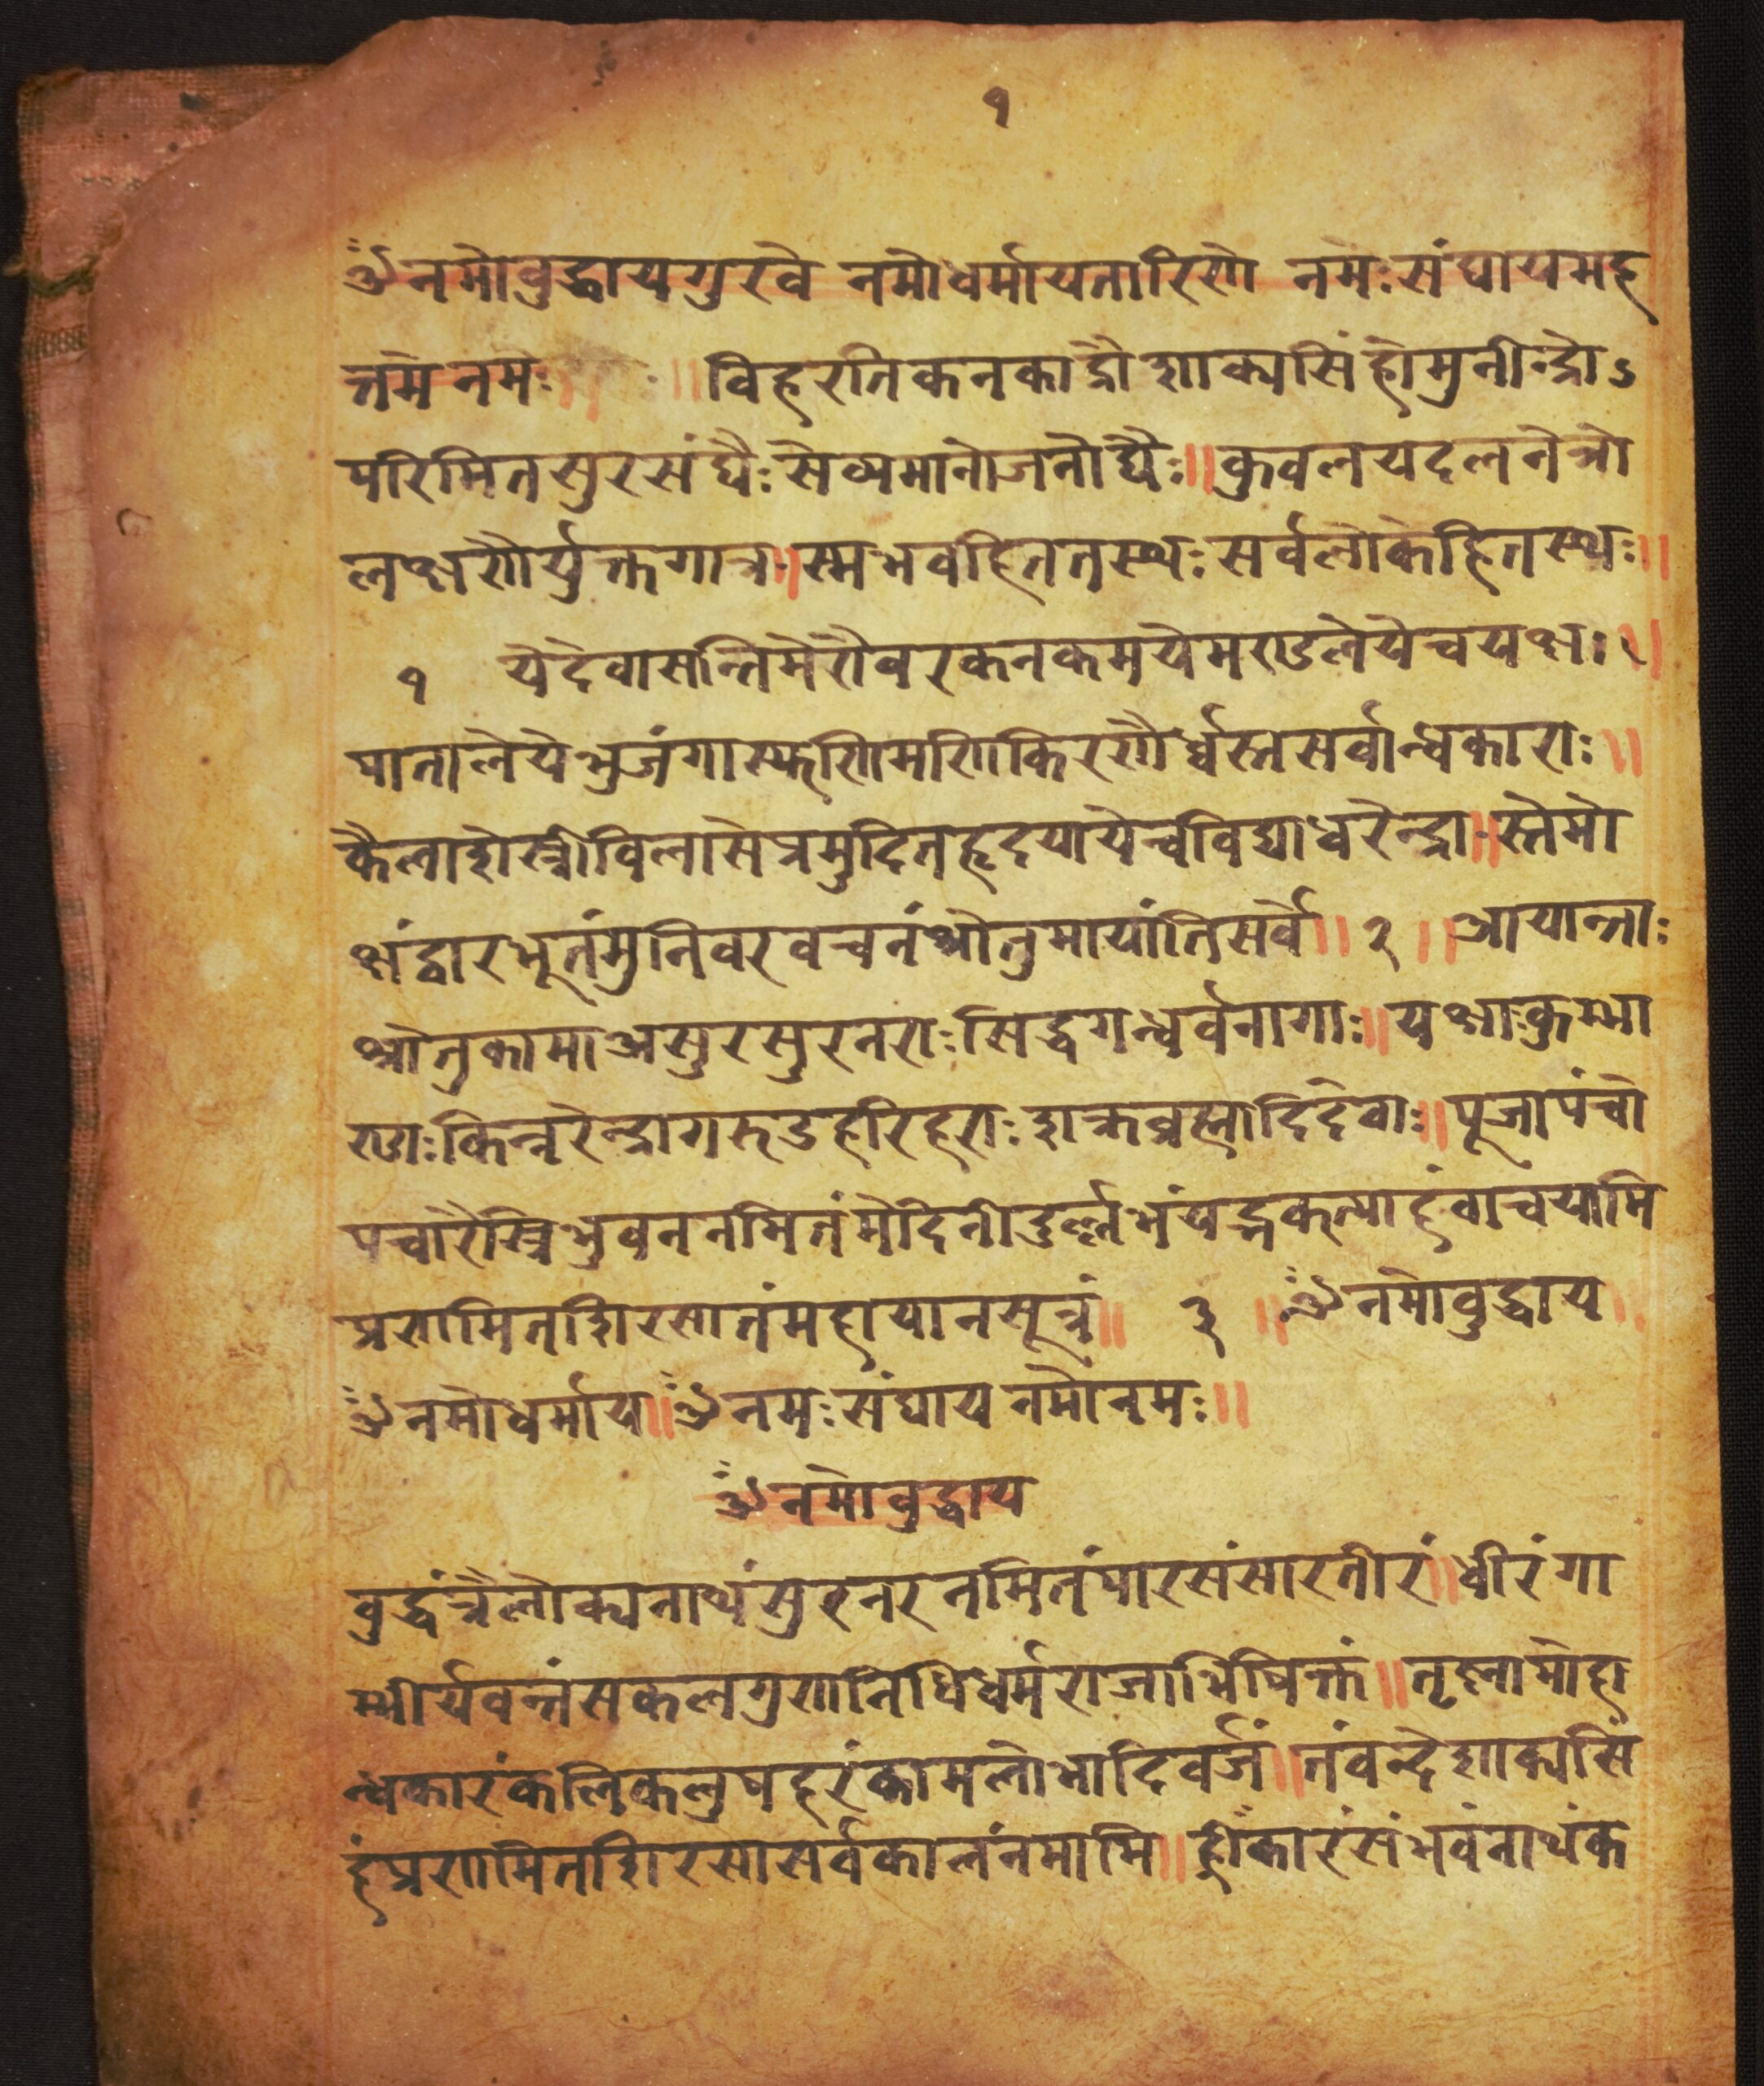 १
ॐनमोवुद्धायगुरवे नमोधर्मायतारिणे नमःसंघायमह
त्तमे नमः॥ ॥विहरतिकनकाद्रौशाक्यसिंहोमुनीन्द्रोऽ
परिमितसुरसंघैःसेव्यमानोजनोघैः॥कुवलयदलनेत्रो
लक्षणैर्युक्तगात्र॥स्मभवहिततस्थःसर्वलोकेहितस्थः॥
१ येदेवासन्तिमेरौवरकनकमयेमण्डलेयेचयक्षाः॥
पातालेयेभुजंगास्फणिमणिकिरणैर्ध्वस्तसर्वान्धकाराः॥
कैलाशेस्त्रीविलासेप्रमुदितहृदयायेचविद्याधरेन्द्रा॥स्तेमो
क्षंद्वारभूतंमुनिवरवचनंश्रोतुमायांतिसर्वे॥२॥आयान्ताः
श्रोतुकामाअसुरसुरनराःसिद्धगन्धर्वनागाः॥यक्षाःकुम्भा
ण्डाःकिन्नरेन्द्रागरुडहरिहराःशक्रब्रह्मादिदेवाः॥पूजापंचो
पचारैस्त्रिभुवननमितंमेदिनीदुर्ल्लभंयद्भक्त्याहंवाचयामि
प्रणमितशिरसातंमहायानसूत्रं॥ ३ ॥ॐनमोवुद्धाय॥
ॐनमोधर्माय॥ॐनमःसंघायनमोनमः॥
ॐनमोवुद्धाय
वुद्धंत्रैलोक्यनाथंसुरनरनमितंपारसंसारतीरं॥धीरंगा
म्भीर्यवन्तंसकलगुणनिधिधर्मराजाभिषिक्तं॥तृष्नामोहा
न्धकारंकलिकलुषहरंकामलोभादिवर्जं॥तंवन्देशाक्यसिं
हंप्रणमितशिरसासर्वकालंनमामि॥ह्रींकारंसंभवंनाथंक